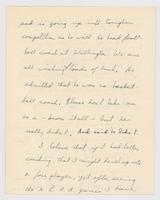 and is going up into tougher
competition as he will be head foot-
ball coach at Wellington. We are
all wishing loads of luck. He
admitted that he was no basket-
ball coach. Please don't take me
as a - know itall - but he
really didn't. And said so didn't
I believe that if it had better
coaching, that it might develop into
a fine player, yet after seeing
the N.C.A.A. games I think